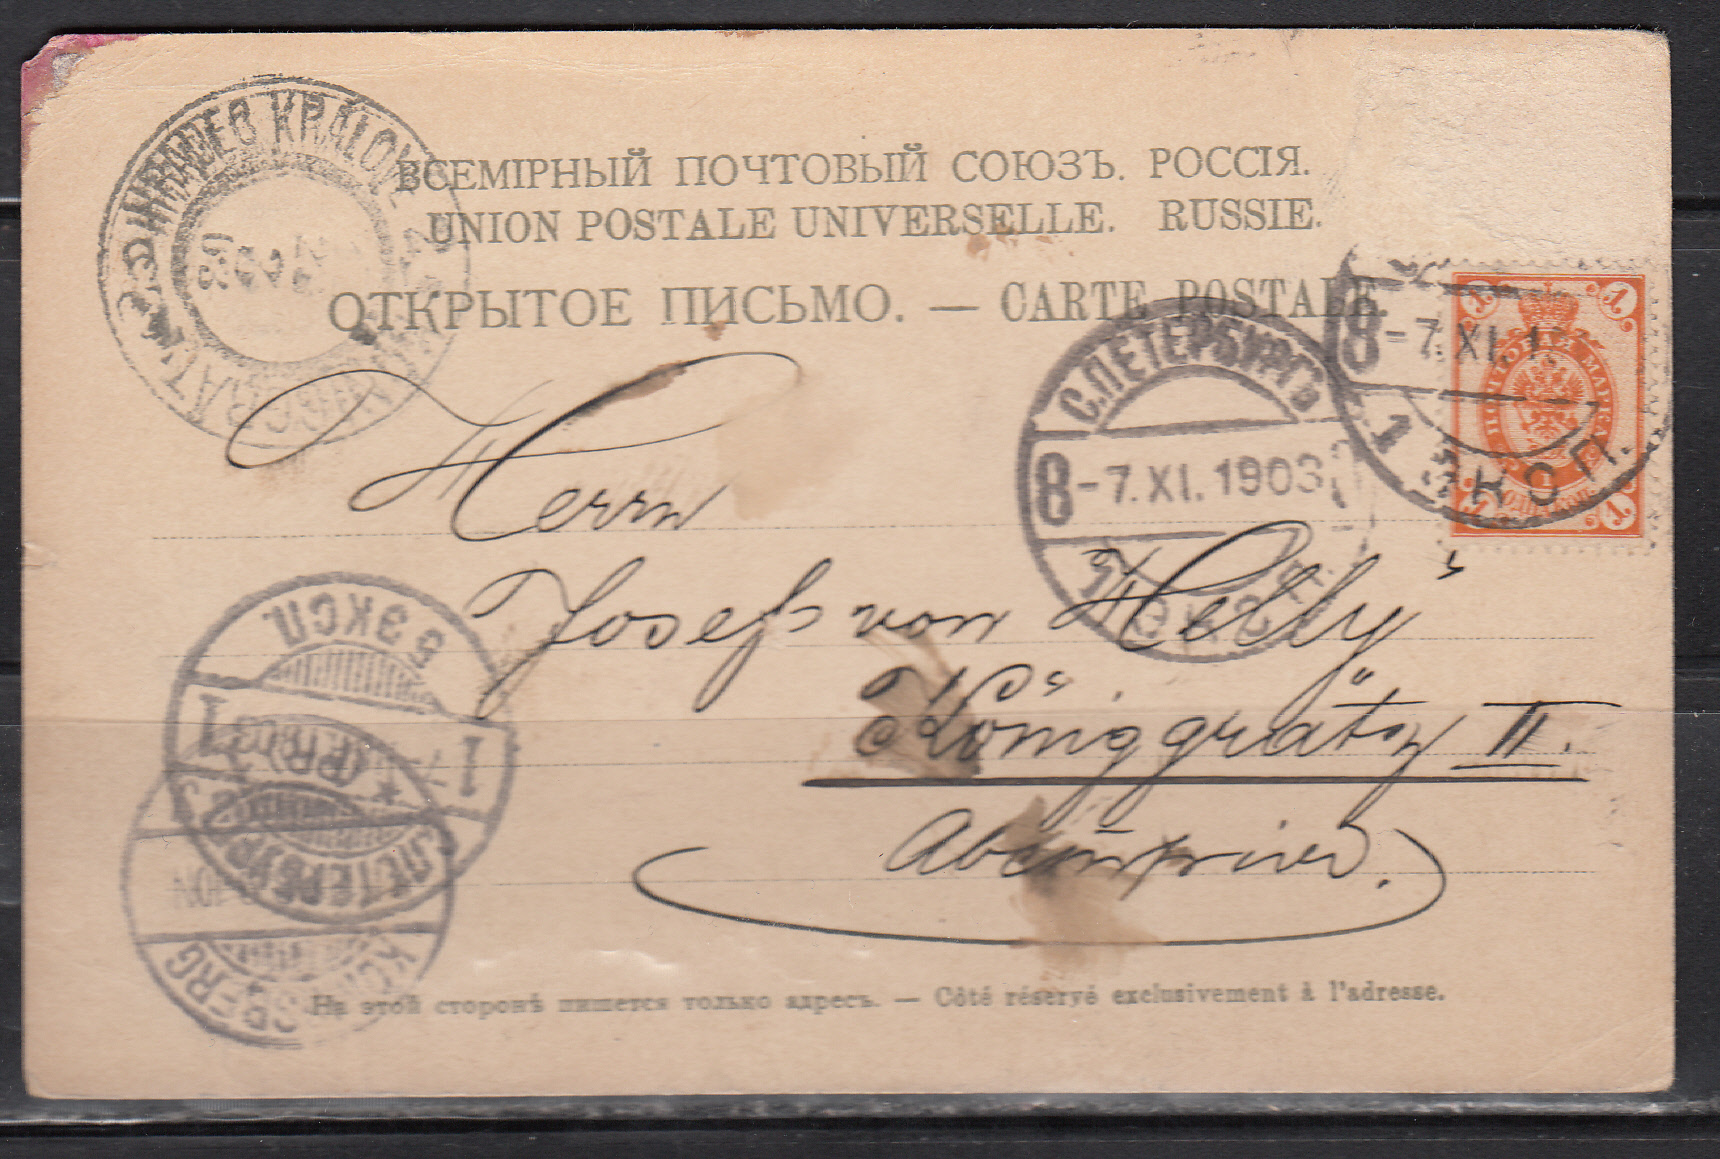 ВСЕМІРНЫЙ ПОЧТОВЫЙ СОЮЗЪ. РОССІЯ.
UNION POSTALE UNIVERSELLE. RUSSIE.
ОТКРЫТОЕ ПИСЬМО. — CARTE POSTALE.
HRADEC KRÁLOVÉ
С.ПЕТЕРБУРГЪ
8 -7.XI.1903
ЭКСП.
8 -7.XI.1
1 ЭКСП.
1 ПОЧТОВАЯ МАРКА 1
1 1
Herrn
Josef von Helly
Königgrätz II.
5 ЭКСП.
1 1
С.ПЕТЕРБУРГ
На этой сторонѣ пишется только адресъ. — Côté réservé exclusivement à l'adresse.